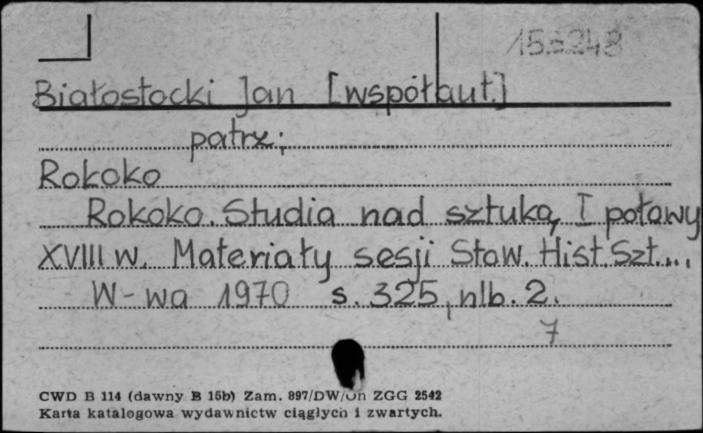 15.3248
Białostocki Jan [współaut.]
patrz:
Rokoko
Rokoko. Studia nad sztuką I połowy
XVIII w. Materiały sesji Stow. Hist. Szt....
W-wa 1970 s. 325, nlb. 2.
7
CWD B 114 (dawny B 15b) Zam. 897/DW/Un ZGG 2542
Karta katalogowa wydawnictw ciągłych i zwartych.